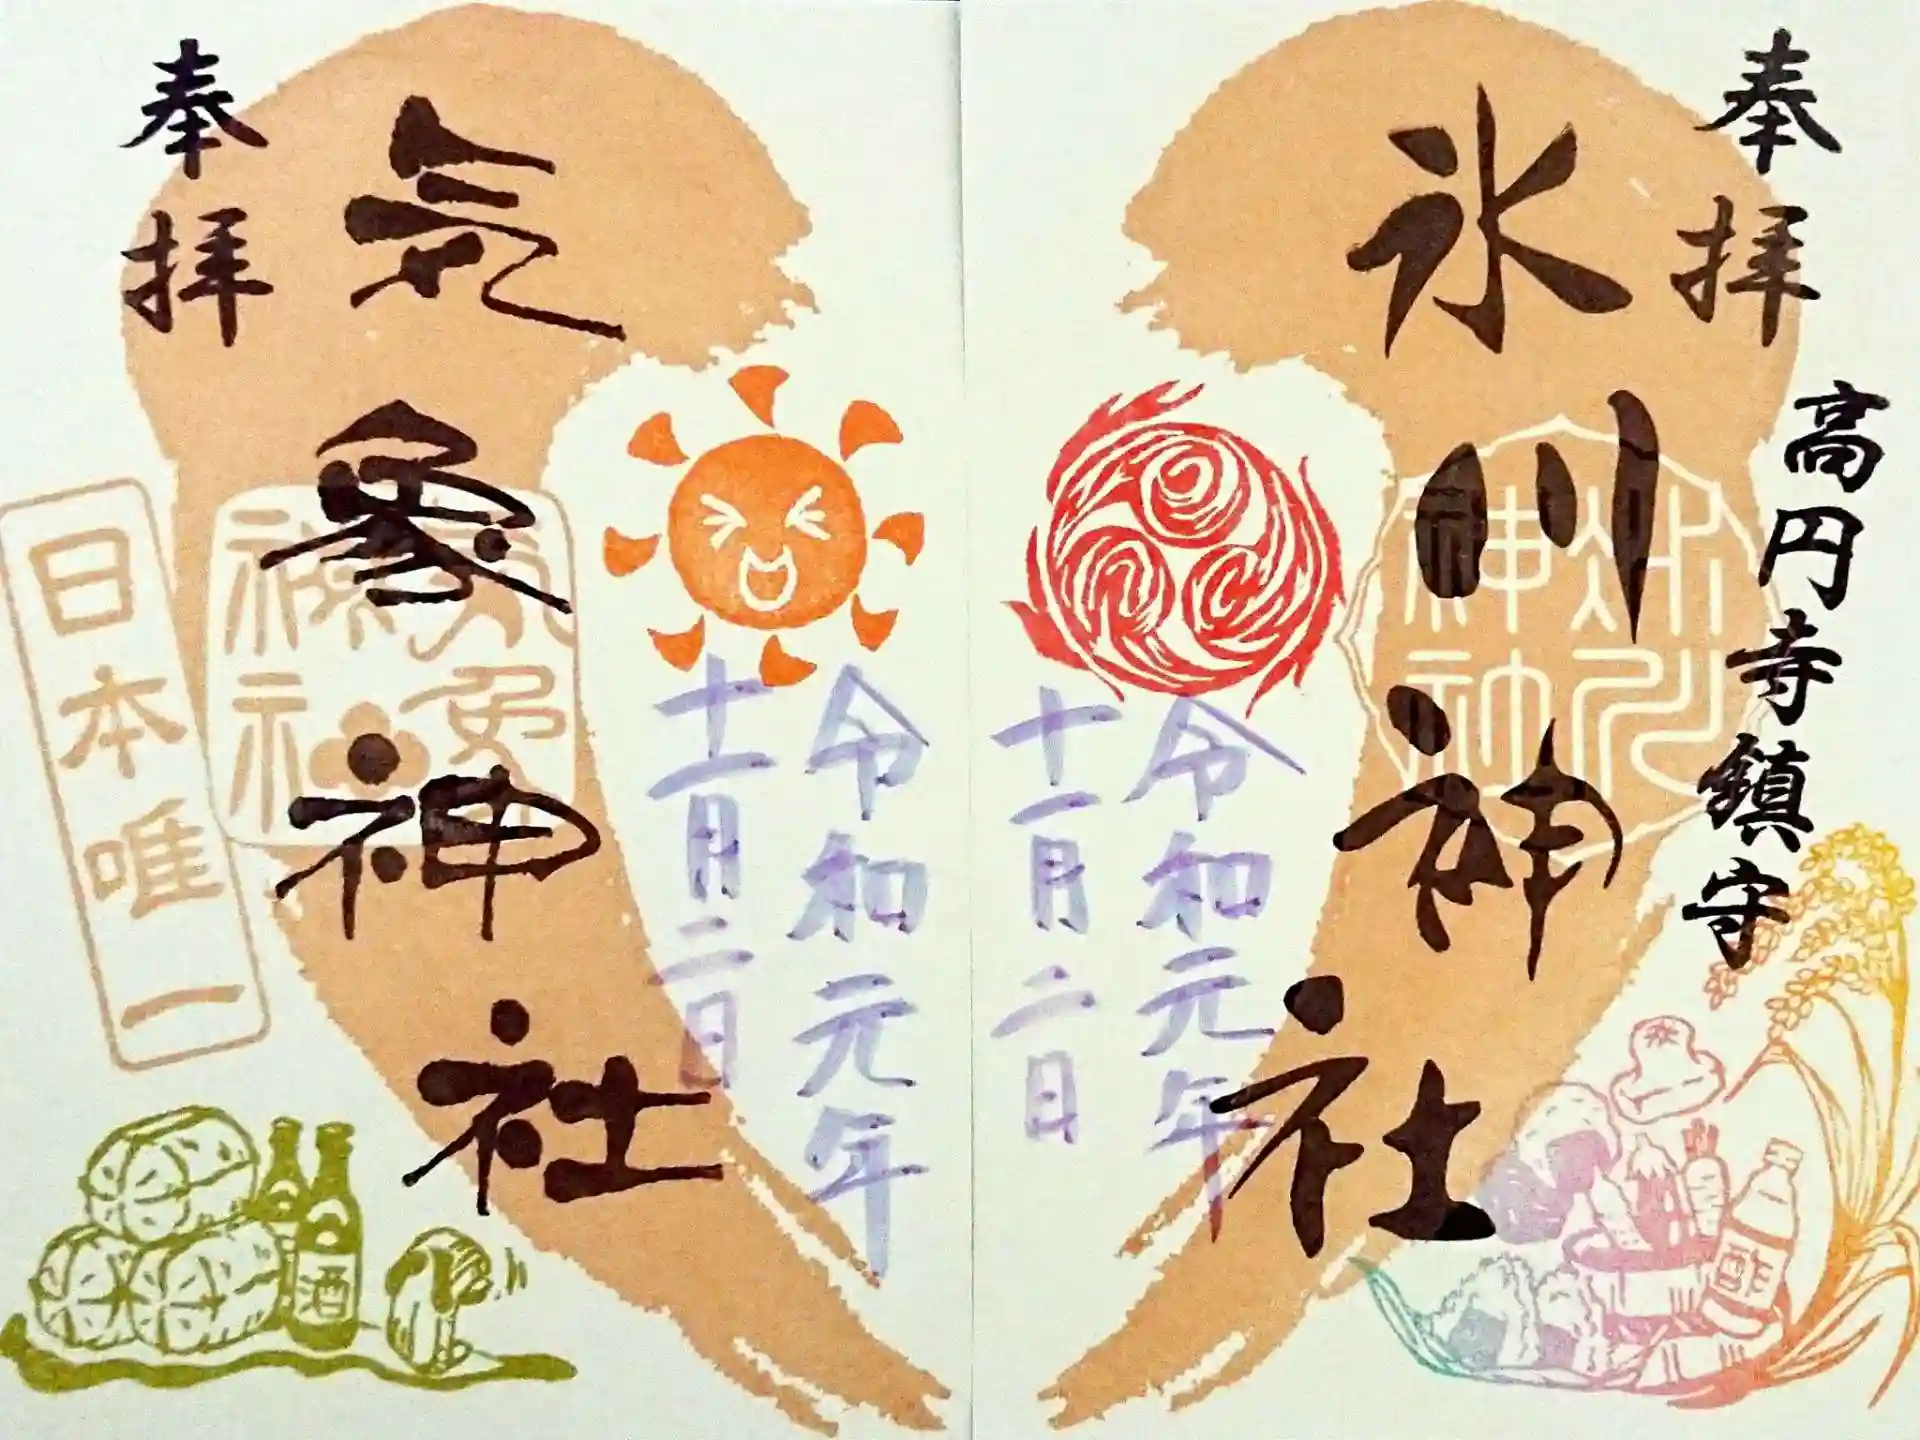 奉拝
高円寺鎮守
氷川神社
氷川神社
令和元年
十一月二日
酢
令和元年
十一月二日
気象神社
気象神社
奉拝
日本唯一
酒